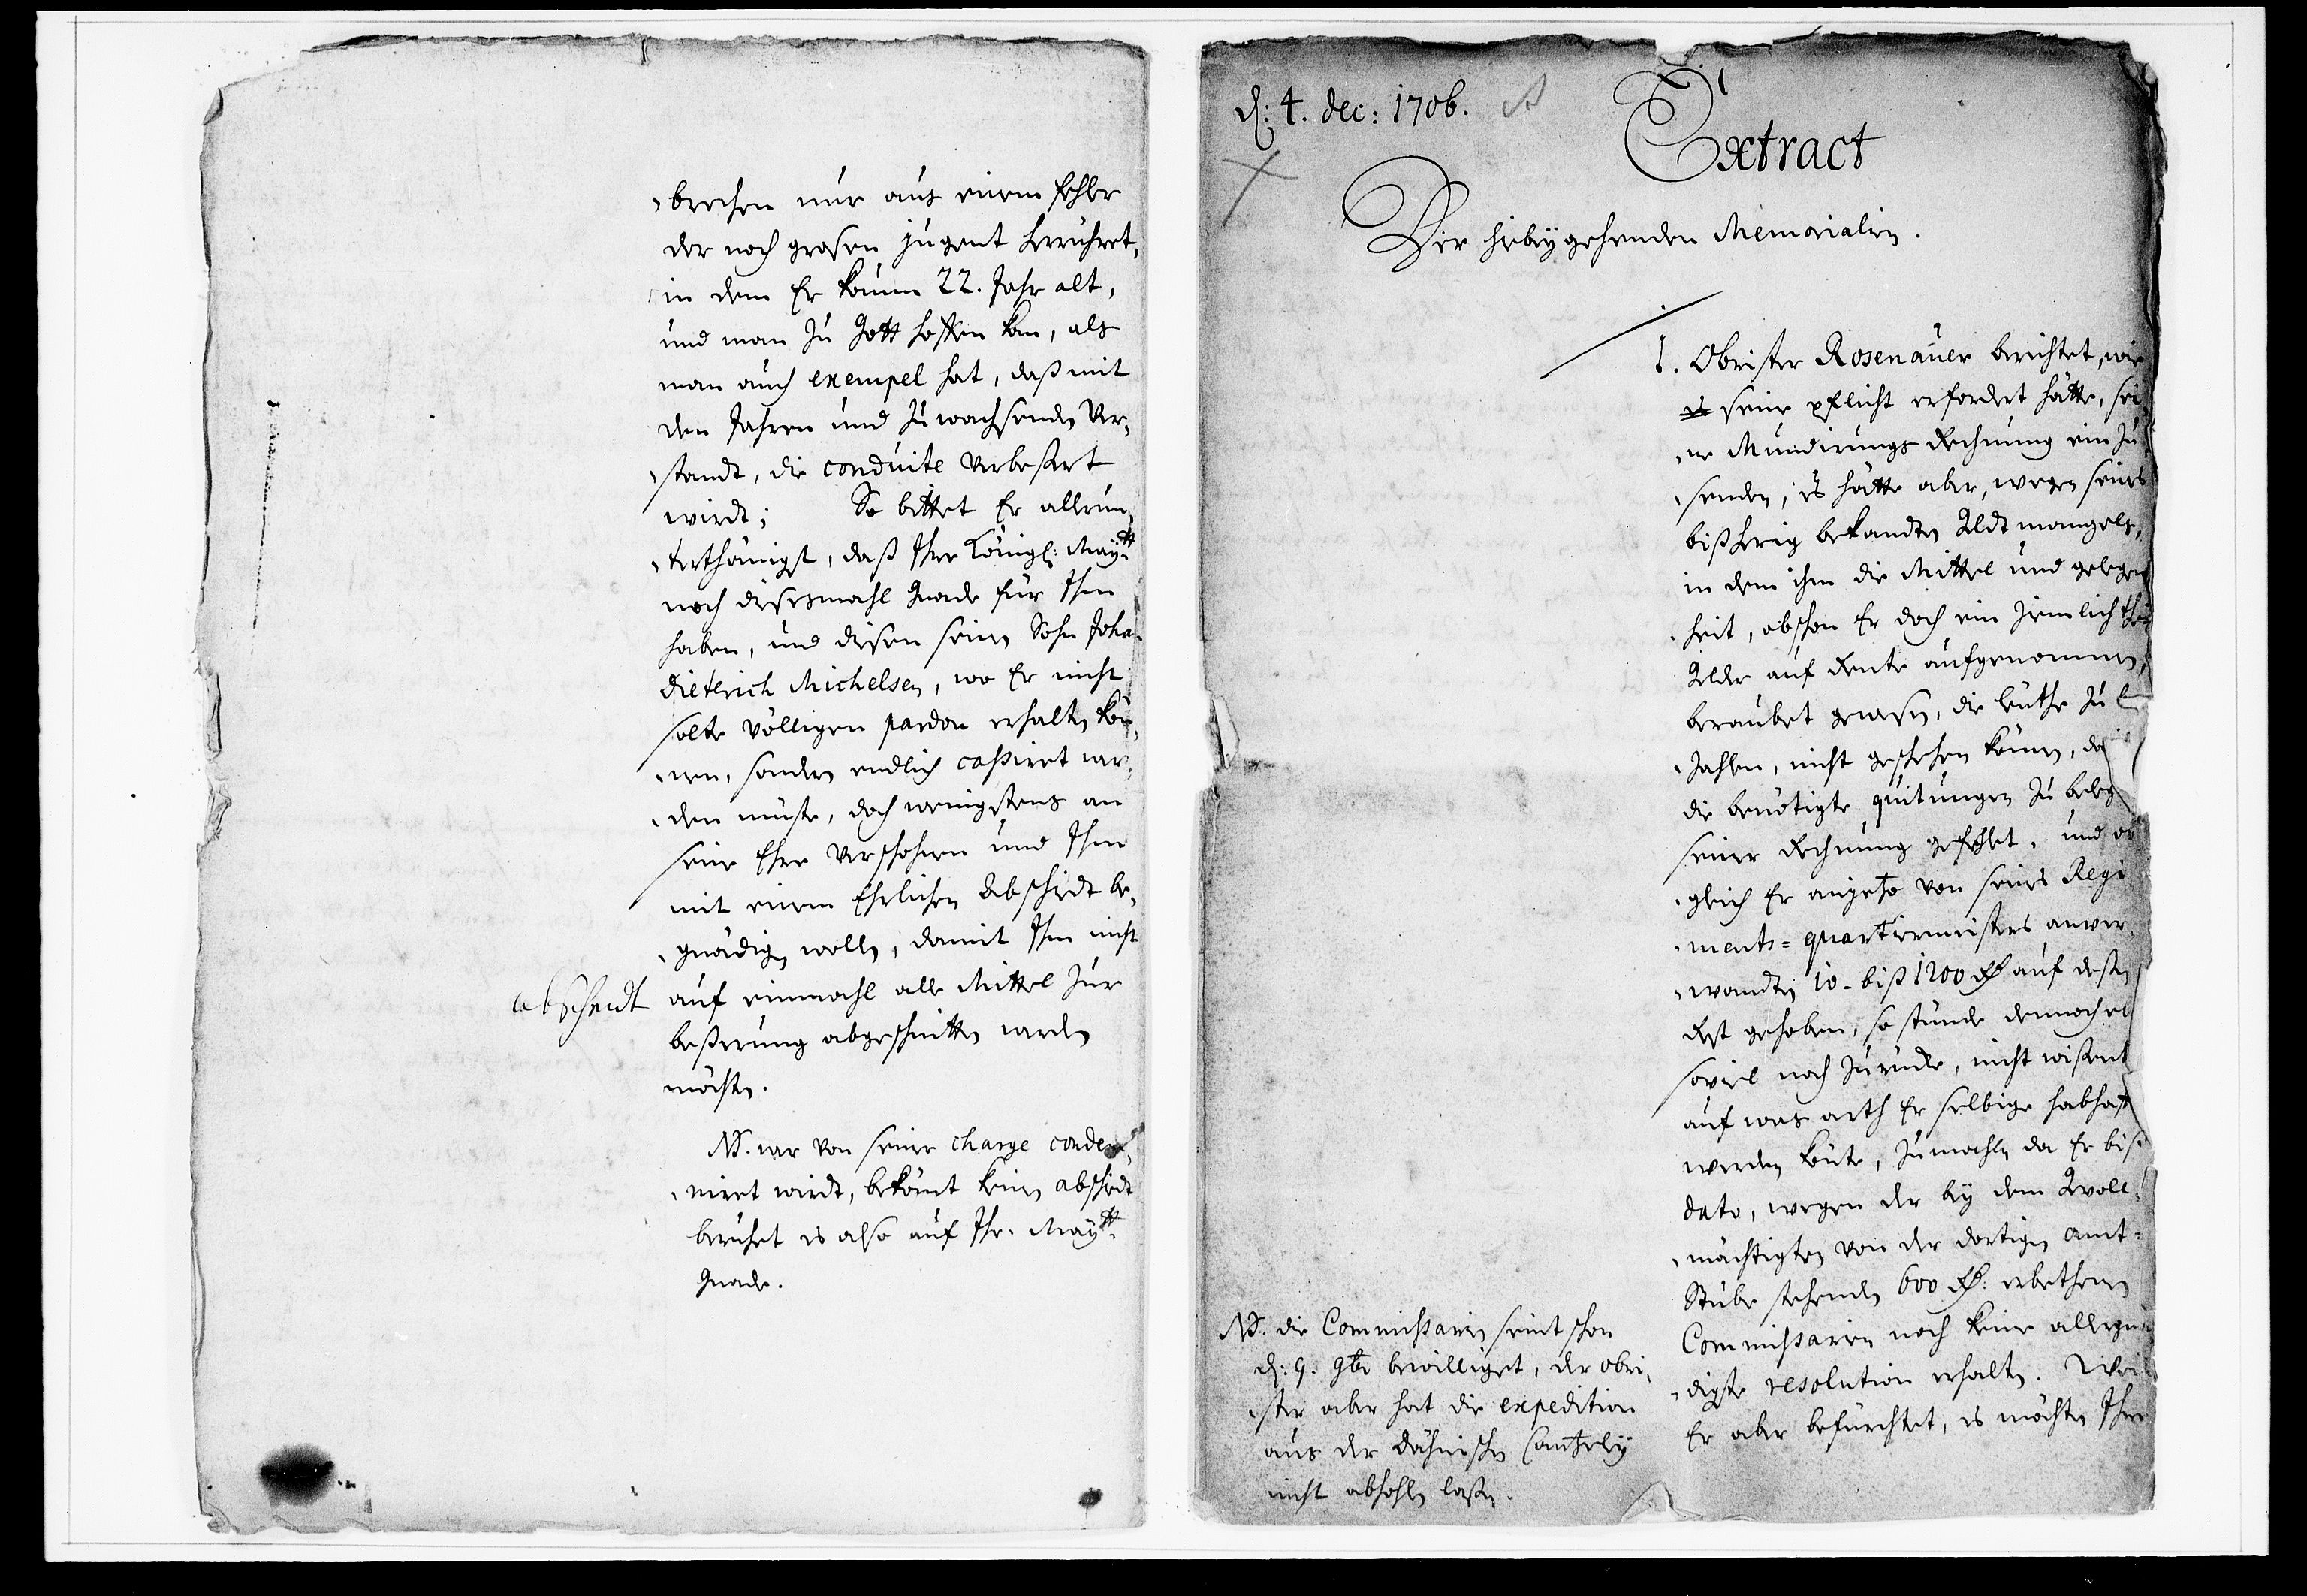 brechen nur aus einem fehler
der noch grosen jugent herrühret,
in dem Er kaum 22. Jahr alt,
und man zu Gott hoffen kan, als
man auch exempel hat, daß mit
den Jahren und zuwachsenden Ver,
standt, die conduite verbeßert
wirdt; So bittet Er allerun,
terthänigst, daß Ihre Königl: Maytt.
noch diesesmahl Gnade für Ihm
haben, und diesen seinen Sohn Joha
Dieterich Michelsen, wo Er nicht
solte völligen pardon erhalten kön,
nen, sondern endlich caßiret wer,
den müste, doch wenigstens an
seine Ehre verschohnen und Ihm
mit einem Ehrlichen Abschiedt be,
gnädigen wollen, damit Ihm nicht
abscheidt
auf einmahl alle Mittel zur
beßerung abgeschnitten werden
möchten.
NB. wer von seiner charge condem,
niret wirdt, bekömt keinen abschiedt
beruhet es also auf Ihr. Maytt.
Gnade.
d: 4. dec: 1706.
Extract
Der hiebeygehenden Memorialien.
1. Obrister Rosenauer berichtet, wie
es seine pflicht erfordert hätte, sei,
ne Mundirungs Rechnung ein zu
senden, es hätte aber, wegen seines
bißherig bekandten Geldtmangels,
in dem ihm die Mittel und gelegen
heit, obschon Er doch ein ziemlich theil
Gelder auf Rente aufgenommen,
beraubet gewesen, die leuthe zu be
zahlen, nicht geschehen können, da
die benötigte quitungen zu beleg
seiner Rechnung gefehlet. und ob
gleich Er anjetzo von seines Regi
ments-quartiermeisters anver,
wandten 10- biß 1200 Rthl auf deßen
Rest gehoben, so stünde dennoch eb
soviel noch zurücke, nicht wißent
auf was arth Er selbige habhaft
werden könte, zumahlen da Er biß
dato, wegen der bey dem Gevoll,
mächtigten von der dortigen Amt-
Stube stehenden 600 Rthl: erbethenen
Commißarien noch keine allergnä
digste resolution erhalten. Weil
Er aber befürchtet, es möchten Ihm
NB. die Commißarien seint schon
d: 9. 9br bewilliget, der obri,
ster aber hat die expedition
aus der dähnischen Cantzeley
nicht abhohlen laßen.